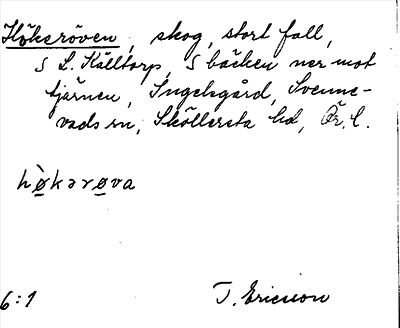 Hökseröven, skog, stort fall,
S L. Källtorp, S bäcken ner mot
tjärnen, Ingelsgård, Svenne-
vads sn, Sköllersta hd, Ör. l.
hø̀kərøva
6:1
T. Ericsson